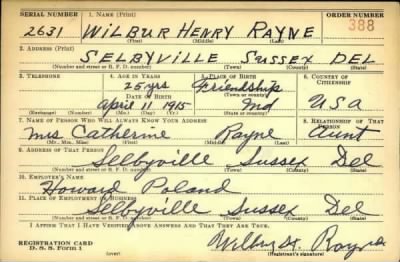 SERIAL NUMBER 1. NAME (Print) ORDER NUMBER
2631 WILBUR HENRY RAYNE 388
(First) (Middle) (Last)
2. ADDRESS (Print)
SELBYVILLE SUSSEX DEL
(Number and street or R. F. D. number) (Town) (County) (State)
3. TELEPHONE 4. AGE IN YEARS 5. PLACE OF BIRTH 6. COUNTRY OF CITIZENSHIP
25 yrs Friendship
DATE OF BIRTH (Town or county)
April 11 1915 Md USA
(Exchange) (Number) (Mo.) (Day) (Yr.) (State or country)
7. NAME OF PERSON WHO WILL ALWAYS KNOW YOUR ADDRESS 8. RELATIONSHIP OF THAT PERSON
Mrs Catherine Rayne Aunt
(Mr., Mrs., Miss) (First) (Middle) (Last)
9. ADDRESS OF THAT PERSON
Selbyville Sussex Del
(Number and street or R. F. D. number) (Town) (County) (State)
10. EMPLOYER'S NAME
Howard Poland
11. PLACE OF EMPLOYMENT OR BUSINESS
Selbyville Sussex Del
(Number and street or R. F. D. number) (Town) (County) (State)
I AFFIRM THAT I HAVE VERIFIED ABOVE ANSWERS AND THAT THEY ARE TRUE.
REGISTRATION CARD Wilbur H. Rayne
D. S. S. Form 1 (over) (Registrant's signature)